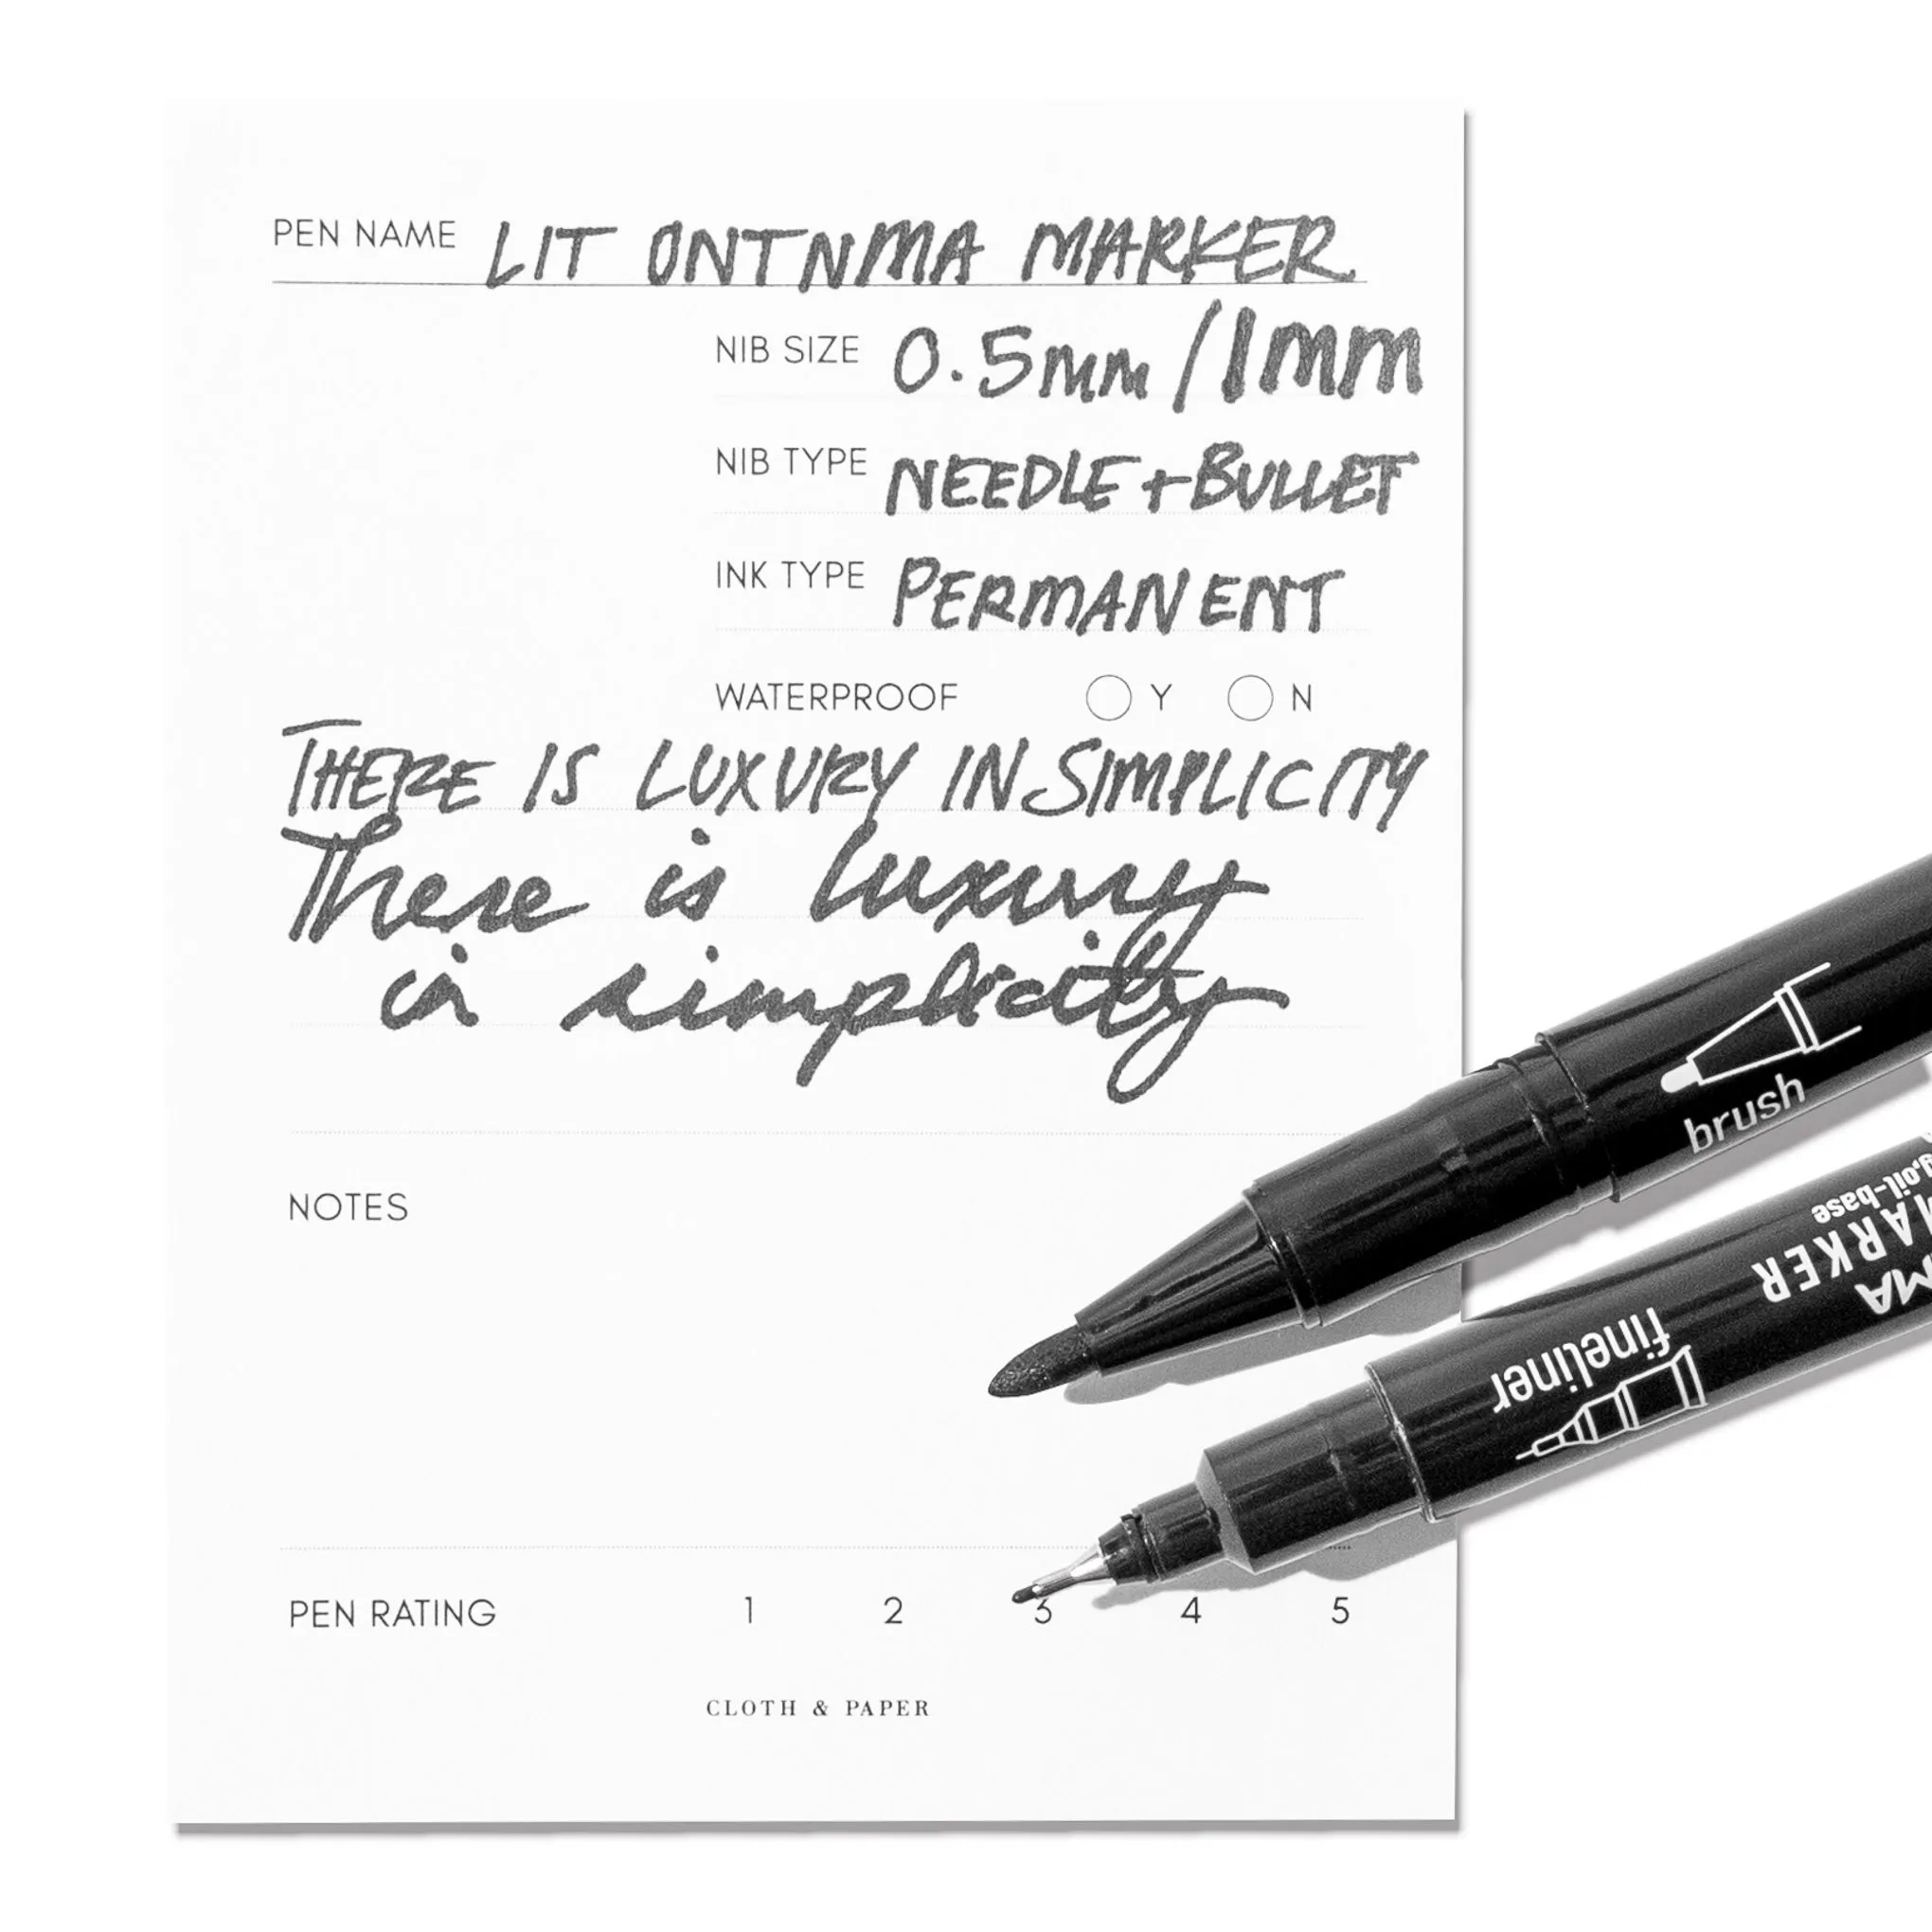 PEN NAME LIT ONTNMA MARKER
NIB SIZE 0.5mm/1mm
NIB TYPE NEEDLE+BULLET
INK TYPE PERMANENT
WATERPROOF Y N
THERE IS LUXURY IN SIMPLICITY
There is luxury
in simplicity
NOTES
PEN RATING 1 2 3 4 5
CLOTH & PAPER
brush
oil-base
MARKER
MA
fineliner